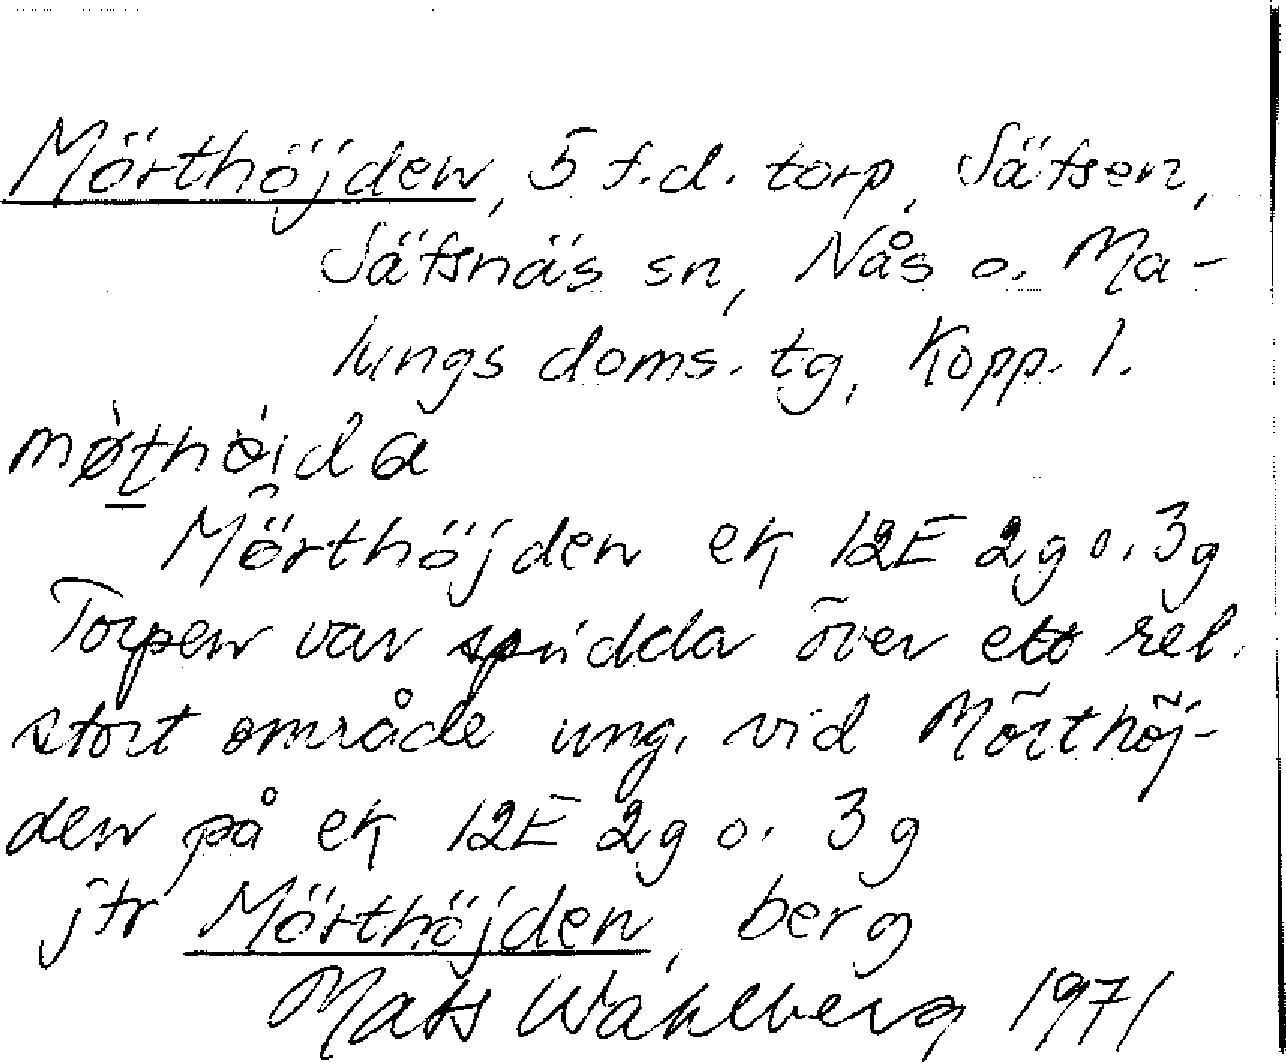 Mörthöjden, 5 f.d. torp, Säfsen,
Säfsnäs sn, Nås o. Ma-
lungs doms. tg, Kopp. l.
Mörthöjden ek 12E 2g o. 3g
Torpen var spridda över ett rel.
stort område ung. vid Mörthöj-
den på ek 12E 2g o. 3g
jfr Mörthöjden, berg
Mats Wahlberg 1971